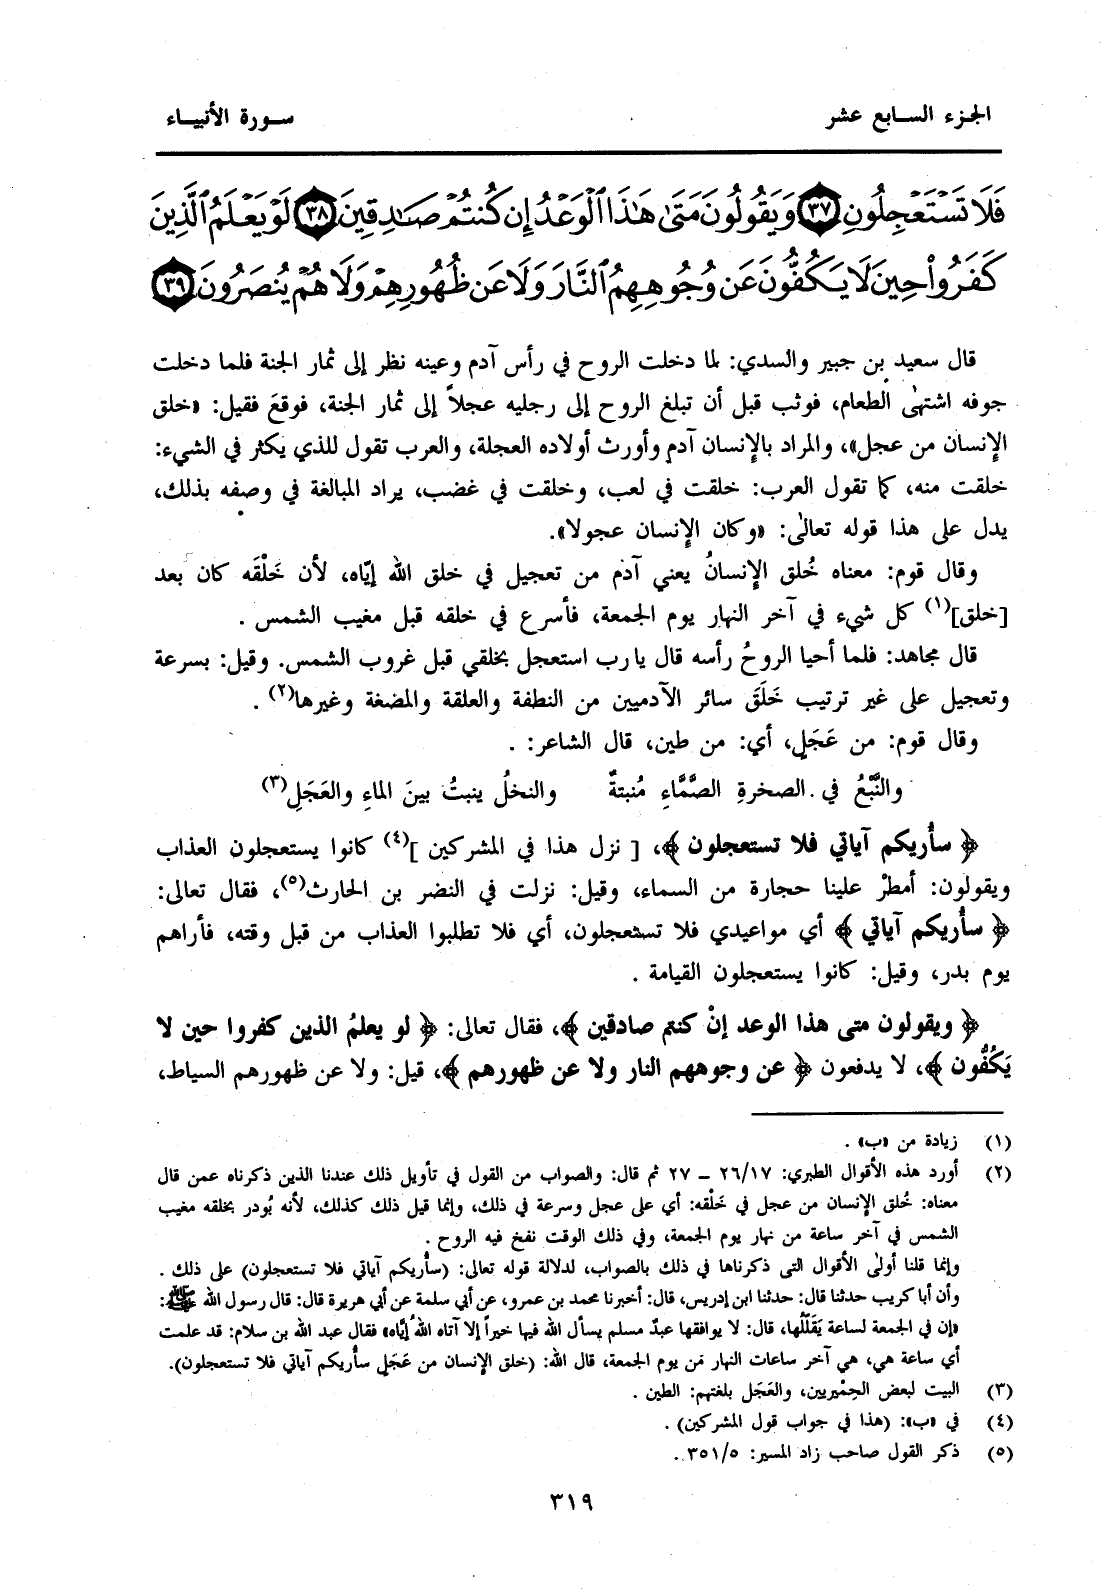 الجزء السابع عشر
سورة الأنبياء
فَلَا تَسْتَعْجِلُونِ ٣٧ وَيَقُولُونَ مَتَىٰ هَٰذَا الْوَعْدُ إِن كُنتُمْ صَادِقِينَ ٣٨ لَوْ يَعْلَمُ الَّذِينَ
كَفَرُوا حِينَ لَا يَكُفُّونَ عَن وُجُوهِهِمُ النَّارَ وَلَا عَن ظُهُورِهِمْ وَلَا هُمْ يُنصَرُونَ ٣٩
قال سعيد بن جبير والسدي: لما دخلت الروح في رأس آدم وعينه نظر إلى ثمار الجنة فلما دخلت
جوفه اشتهىٰ الطعام، فوثب قبل أن تبلغ الروح إلى رجليه عجلاً إلى ثمار الجنة، فوقعَ فقيل: «خلق
الإنسان من عجل»، والمراد بالإنسان آدم وأورث أولاده العجلة، والعرب تقول للذي يكثر في الشيء:
خلقت منه، كما تقول العرب: خلقت في لعب، وخلقت في غضب، يراد المبالغة في وصفه بذلك،
يدل على هذا قوله تعالىٰ: «وكان الإنسان عجولا».
وقال قوم: معناه خُلق الإنسانُ يعني آدم من تعجيل في خلق الله إيّاه، لأن خَلْقَه كان بعد
[خلق](١) كل شيء في آخر النهار يوم الجمعة، فأسرع في خلقه قبل مغيب الشمس .
قال مجاهد: فلما أحيا الروحُ رأسه قال يا رب استعجل بخلقي قبل غروب الشمس. وقيل: بسرعة
وتعجيل على غير ترتيب خَلَقَ سائر الآدميين من النطفة والعلقة والمضغة وغيرها(٢) .
وقال قوم: من عَجَلٍ، أي: من طين، قال الشاعر: .
والنَّبْعُ في الصخرةِ الصَّمَّاءِ مُنبتةٌ والنخلُ ينبتُ بينَ الماءِ والعَجَلِ(٣)
﴿ سأُريكم آياتي فلا تستعجلون ﴾، [ نزل هذا في المشركين ](٤) كانوا يستعجلون العذاب
ويقولون: أمطرْ علينا حجارة من السماء، وقيل: نزلت في النضر بن الحارث(٥)، فقال تعالى:
﴿ سأُريكم آياتي ﴾ أي مواعيدي فلا تستعجلون، أي فلا تطلبوا العذاب من قبل وقته، فأراهم
يوم بدر، وقيل: كانوا يستعجلون القيامة .
﴿ ويقولون متى هذا الوعد إنْ كنتم صادقين ﴾، فقال تعالى: ﴿ لو يعلمُ الذين كفروا حين لا
يَكُفُّون ﴾، لا يدفعون ﴿ عن وجوههم النار ولا عن ظهورهم ﴾، قيل: ولا عن ظهورهم السياط،
(١) زيادة من «ب» .
(٢) أورد هذه الأقوال الطبري: ٢٦/١٧ – ٢٧ ثم قال: والصواب من القول في تأويل ذلك عندنا الذين ذكرناه عمن قال
معناه: خُلق الإنسان من عجل في خَلْقه: أي على عجل وسرعة في ذلك، وإنما قيل ذلك كذلك، لأنه بُودر بخلقه مغيب
الشمس في آخر ساعة من نهار يوم الجمعة، وفي ذلك الوقت نفخ فيه الروح .
وإنما قلنا أولىٰ الأقوال التى ذكرناها في ذلك بالصواب، لدلالة قوله تعالى: (سأُريكم آياتي فلا تستعجلون) على ذلك .
وأن أبا كريب حدثنا قال: حدثنا ابن إدريس، قال: أخبرنا محمد بن عمرو، عن أبي سلمة عن أبي هريرة قال: قال رسول الله ﷺ:
«إن في الجمعة لساعة يَقَلِّلُها، قال: لا يوافقها عبدٌ مسلم يسأل الله فيها خيراً إلا آتاه اللهُ إيَّاه» فقال عبد الله بن سلام: قد علمت
أي ساعة هي، هي آخر ساعات النهار من يوم الجمعة، قال الله: (خلق الإنسان من عَجَلٍ سأُريكم آياتي فلا تستعجلون).
(٣) البيت لبعض الحِمْيريين، والعَجَل بلغتهم: الطين .
(٤) في «ب»: (هذا في جواب قول المشركين) .
(٥) ذكر القول صاحب زاد المسير: ٣٥١/٥ .
٣١٩